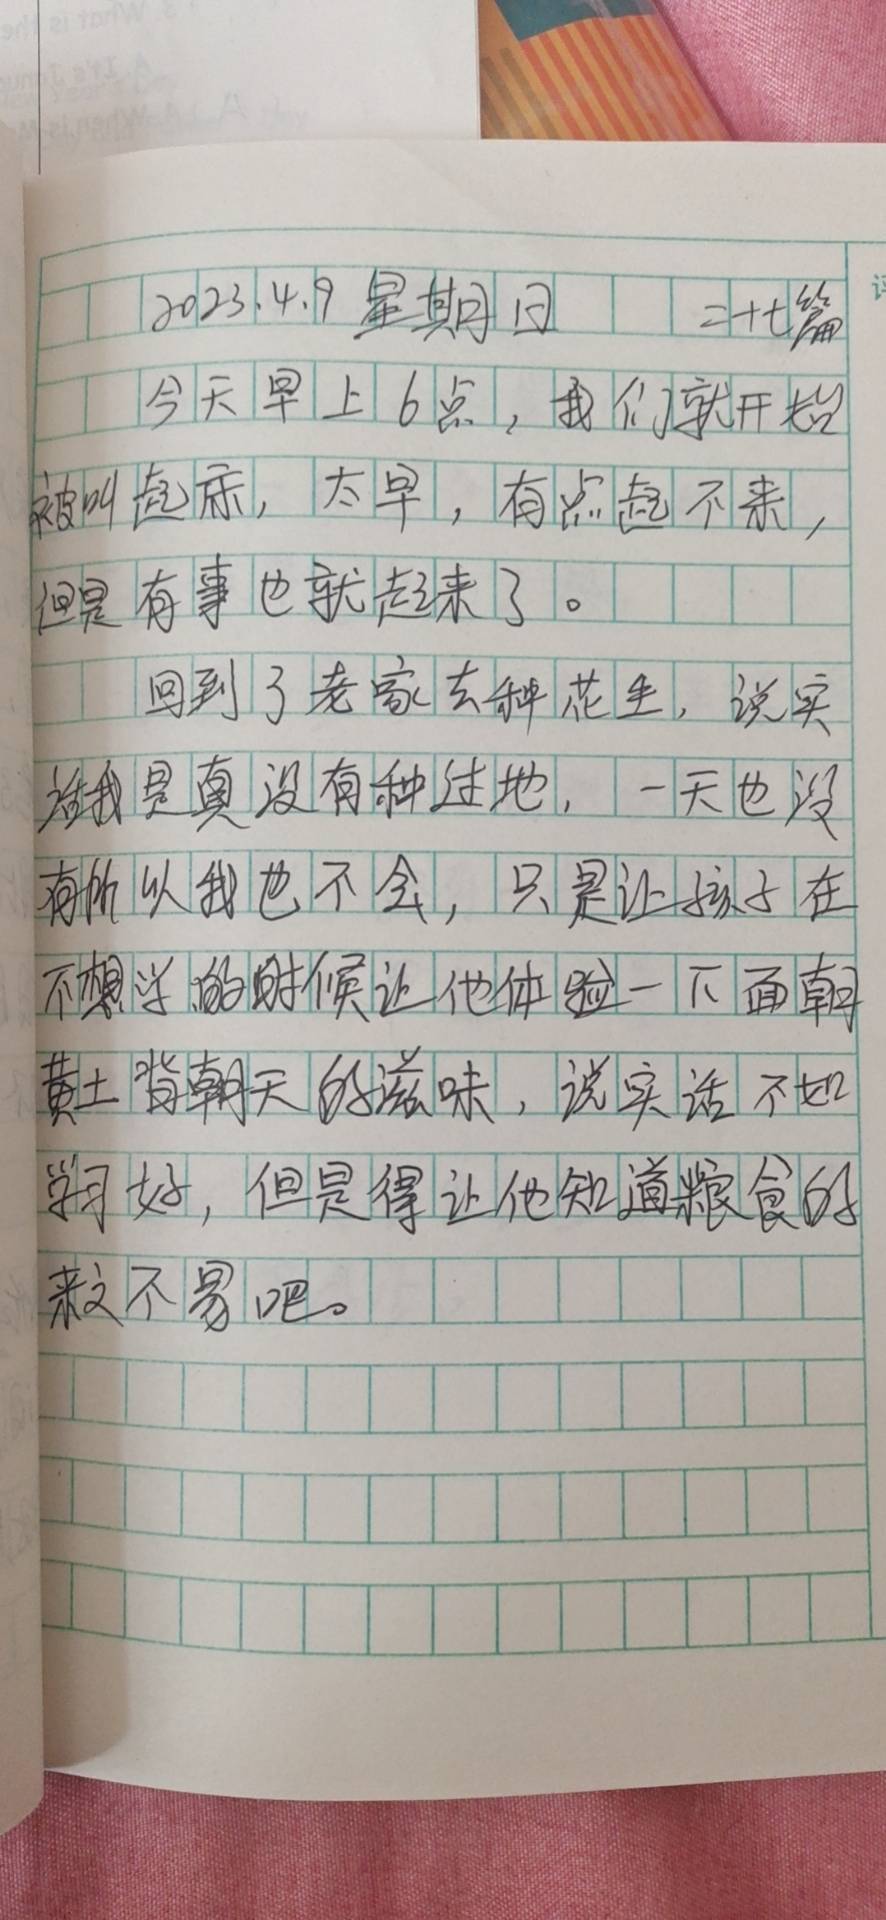 2023.4.9 星期日 二十七篇
今天早上6点，我们就开始
被叫起床，太早，有点起不来，
但是有事也就起来了。
回到了老家去种花生，说实
话我是真没有种过地，一天也没
有所以我也不会，只是让孩子在
不想学的时候让他体验一下面朝
黄土背朝天的滋味，说实话不如
学习好，但是得让他知道粮食的
来之不易吧。